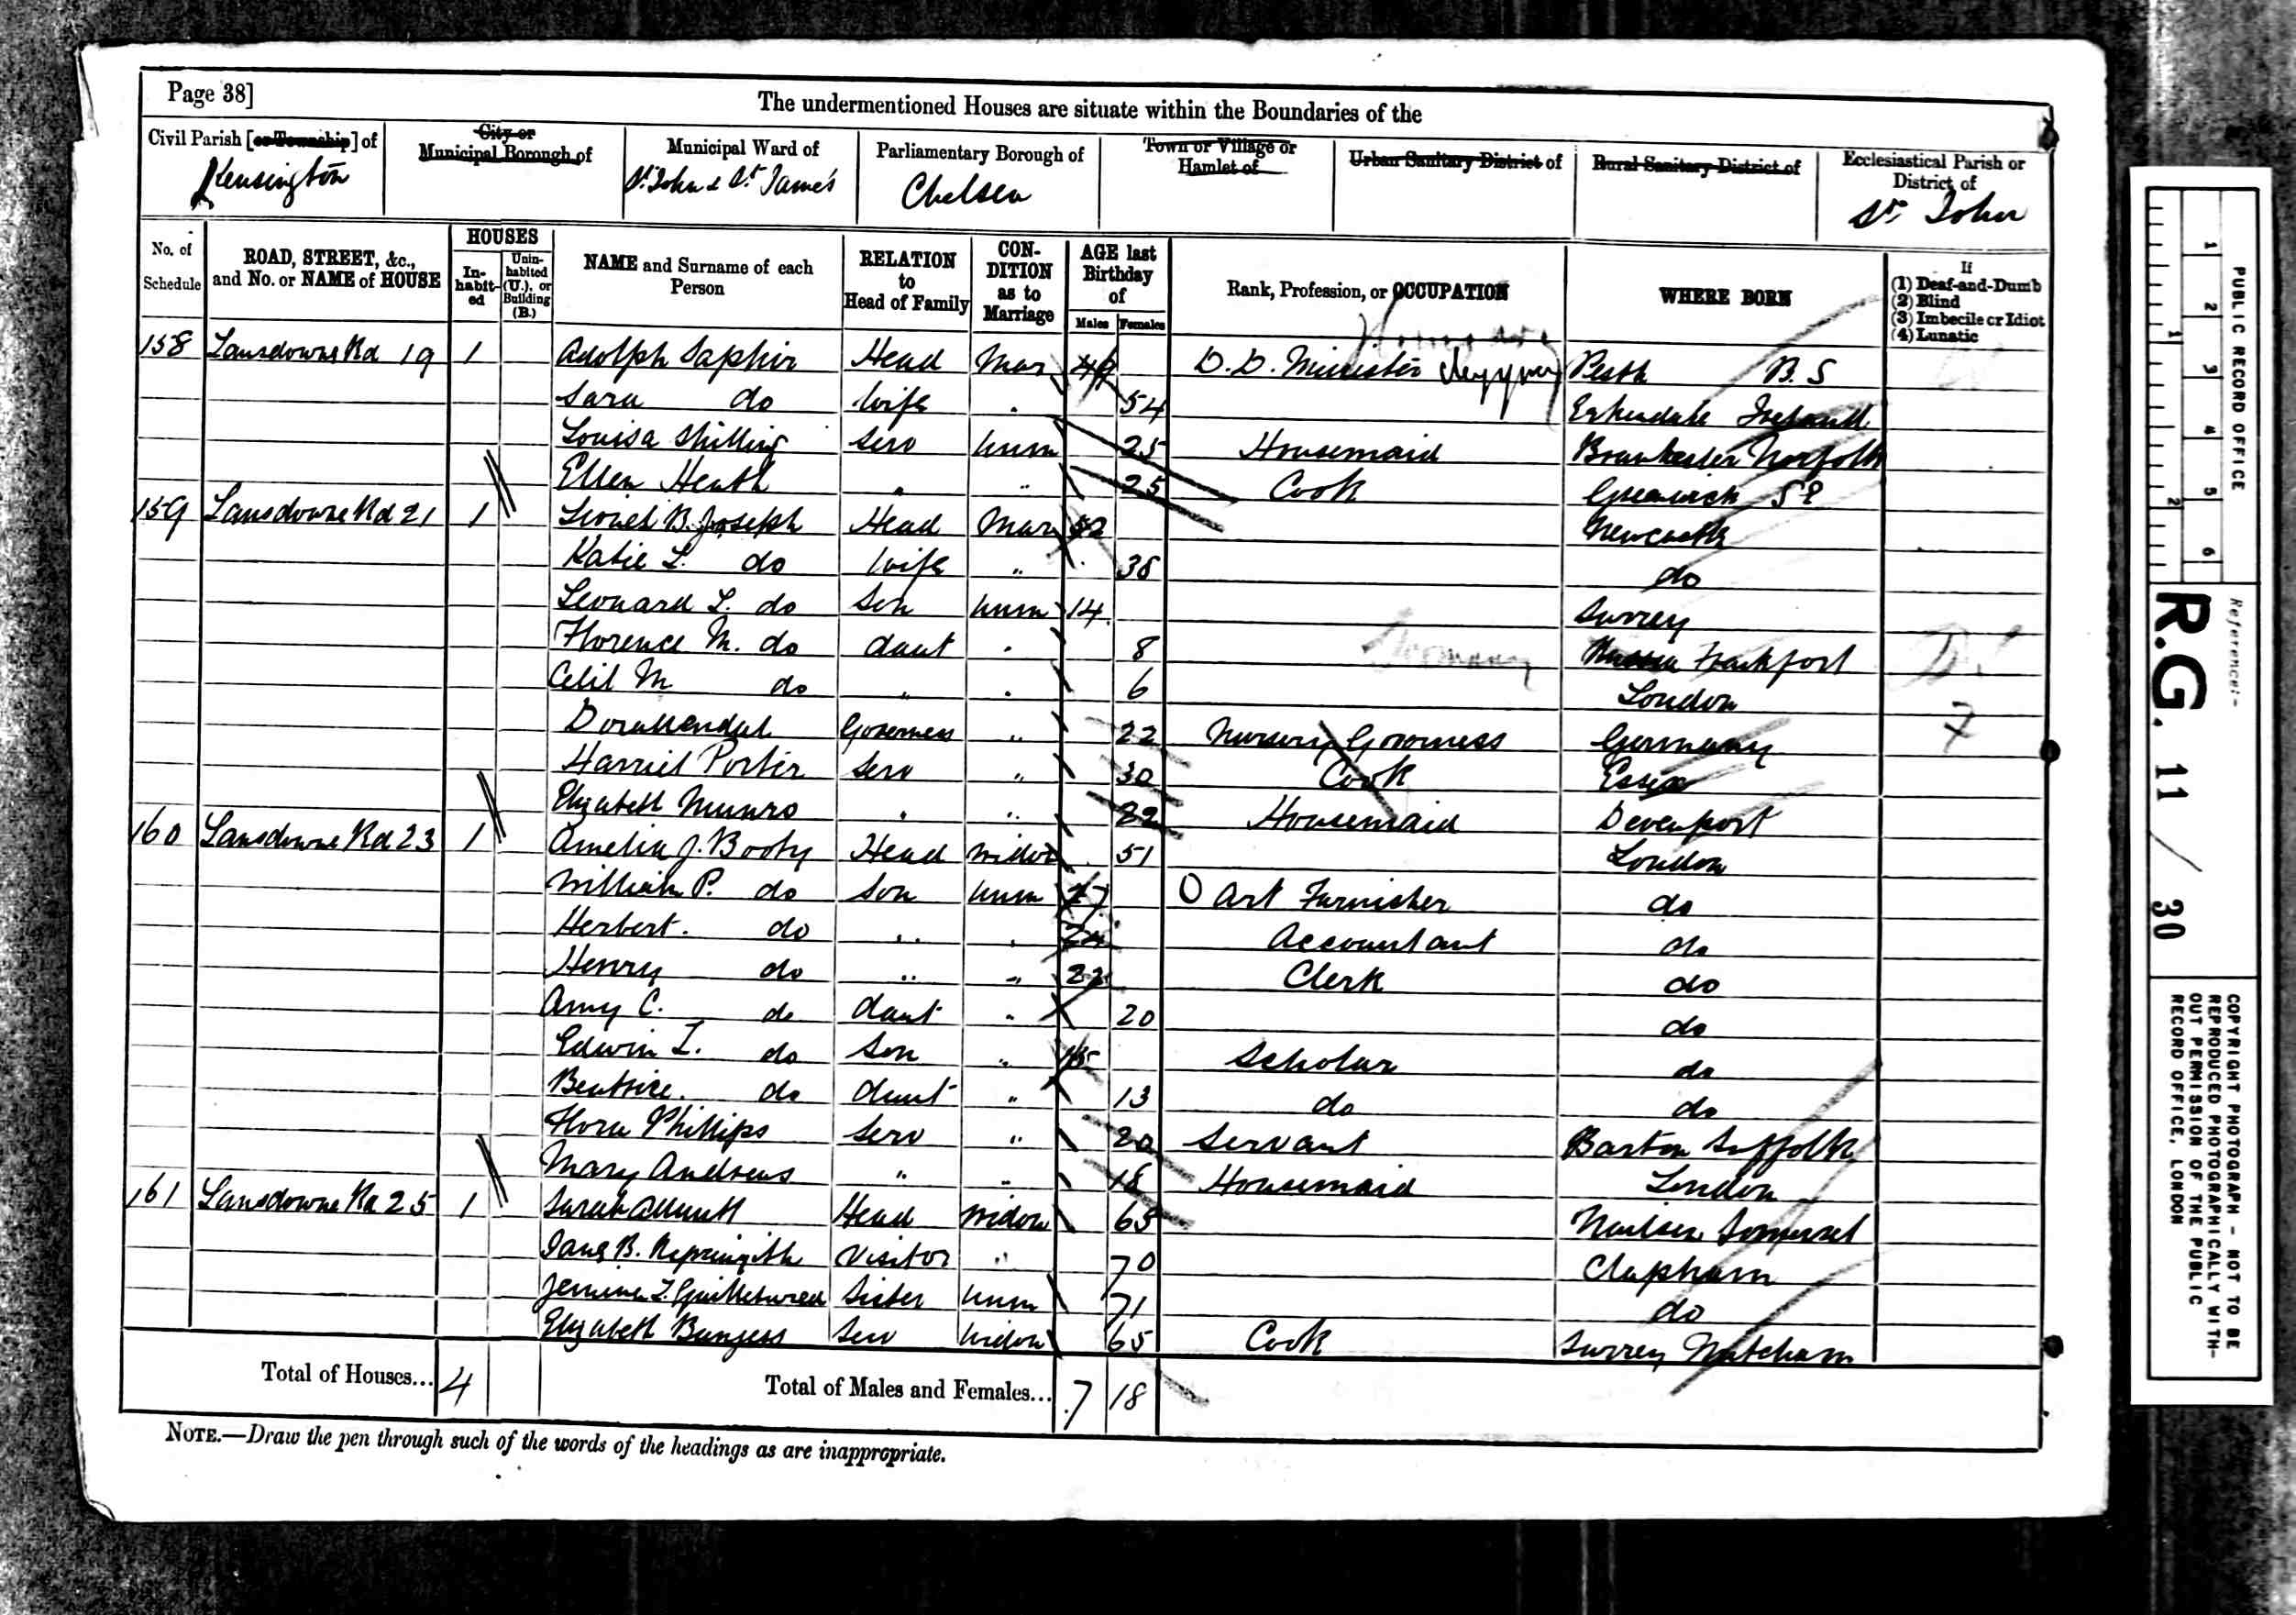 Page 38]
The undermentioned Houses are situate within the Boundaries of the
Civil Parish [or Township] of
Kensington
City or
Municipal Borough of
Municipal Ward of
St John & St James
Parliamentary Borough of
Chelsea
Town or Village or
Hamlet of
Urban Sanitary District of
Rural Sanitary District of
Ecclesiastical Parish or
District of
St John
No. of
Schedule
ROAD, STREET, &c.,
and No. or NAME of HOUSE
HOUSES
In-
habit-
ed
Unin-
habited
(U.), or
Building
(B.)
NAME and Surname of each
Person
RELATION
to
Head of Family
CON-
DITION
as to
Marriage
AGE last
Birthday
of
Males Females
Rank, Profession, or OCCUPATION
WHERE BORN
If
(1) Deaf-and-Dumb
(2) Blind
(3) Imbecile or Idiot
(4) Lunatic
158 Lansdowne Rd 19 1 Adolph Saphir Head Mar 49 D.D. Minister Pesth B.S
Sara do Wife 54 Ireland
Louisa Shilling Serv Unm 25 Housemaid Norfolk
Ellen Heath " " 25 Cook Greenwich
159 Lansdowne Rd 21 1 Lionel B. Joseph Head Mar 52 Newcastle
Katie L. do Wife " 38 do
Leonard L. do Son Unm 14 Surrey
Florence M. do daut " 8 Germany Frankfort
Cecil M do " " 6 London
Governess " 22 Nursery Governess Germany
Harriet Porter Serv " 30 Cook Essex
Elizabeth Munro " " 22 Housemaid Devenport
160 Lansdowne Rd 23 1 Amelia J. Booty Head Widow 51 London
William P. do Son Unm 27 Art Furnisher do
Herbert. do " " 24 Accountant do
Henry do " " 22 Clerk do
Amy C. do daut " 20 do
Edwin I. do Son " 15 Scholar do
Beatrice. do daut " 13 do do
Flora Phillips Serv " 20 Servant Barton Suffolk
Mary Andrews " " 18 Housemaid London
161 Lansdowne Rd 25 1 Sarah Head Widow 65 Somerset
Jane B. Visitor " 70 Clapham
Sister Unm 71 do
Elizabeth Burgess Serv Widow 65 Cook Surrey
Total of Houses... 4
Total of Males and Females... 7 18
NOTE.—Draw the pen through such of the words of the headings as are inappropriate.
1 2 3 4 5 6
1 2
PUBLIC RECORD OFFICE
Reference:-
R.G. 11 / 30
COPYRIGHT PHOTOGRAPH - NOT TO BE
REPRODUCED PHOTOGRAPHICALLY WITH-
OUT PERMISSION OF THE PUBLIC
RECORD OFFICE, LONDON